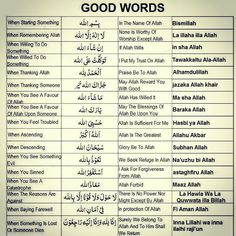 GOOD WORDS
When Starting Something بِسْمِ الله In The Name Of Allah Bismillah
When Remembering Allah لَا إِلَهَ إِلَّا الله None Is Worthy Of Worship Except Allah La illaha illa Allah
When Willing To Do Something إِنْ شَاءَ الله If Allah Wills in sha Allah
When Willed To Do Something I Put My Trust On Allah Tawakkaltu Ala-Allah
When Thanking Someone الْحَمْدُ لله Praise Be To Allah Alhamdulillah
When Thanking Allah May Allah Reward You With Good jazaka Allah khair
When You See A Favour Of Allah مَا شَاءَ الله Allah Has Willed It Ma sha Allah
When You Bear A Favour Of Allah Upon Someone بَارَكَ الله May The Blessings Of Allah Be Upon You Baraka Allah
When You Feel Troubled حَسْبِيَ الله Allah Is Sufficient For Me Hasbi ya Allah
When Ascending الله أَكْبَر Allah Is The Greatest Allahu Akbar
When Descending سُبْحَانَ الله Glory Be To Allah Subhan Allah
When You See Something Evil نَعُوذُ بِالله We Seek Refuge in Allah Na'uzhu bi Allah
When You Sin أَسْتَغْفِرُ الله I Ask For Forgiveness From Allah astaghfiru Allah
When You See A Catastrophe مَعَاذَ الله Allah Forbid Maaz Allah
When The Reasons Are Against لَا حَوْلَ وَلَا قُوَّةَ إِلَّا بِالله There Is No Power Nor Might Except By Allah La Hawla Wa La Quwwata illa Billah
When Saying Farewell فِي أَمَانِ الله In Allah Is protection Fi Aman Allah
When Something Is Lost Or Someone Dies إِنَّا لله وَإِنَّا إِلَيْهِ رَاجِعُونَ Surely We Belong To Allah And To Him Shall We Return Inna Lillahi wa inna ilaihi raji'un